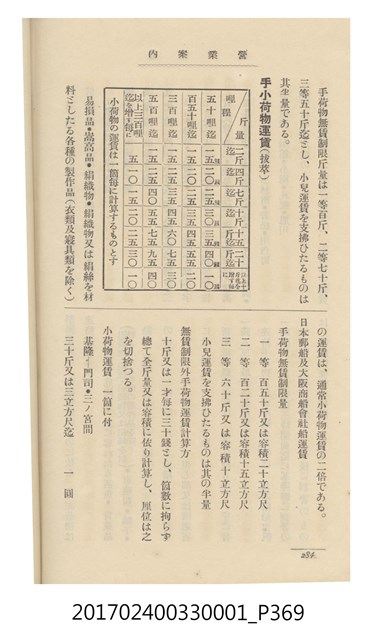 營業案內
手荷物無賃制限斤量は一等百斤、二等七十斤、
三等五十斤迄とし、小兒運賃を支拂ひたるものは
其半量である。
手小荷物運賃(拔萃)
斤量 哩程 二斤迄 四斤迄 七斤迄 十斤迄 十五斤迄 二十斤迄
五十哩迄 一五 二〇 二五 三〇 三五 四〇 一〇
百五十哩迄
三百哩迄
五百哩迄
以上三百哩迄を增す每に 五 一〇 一五 二〇 二五 三〇 一〇
小荷物の運賃は一箇每に計算するものとす
易損品・嵩高品・絹織物・絹織物又は絹絲を材
料としたる各種の製作品(衣類及寢具類を除く)
の運賃は、通常小荷物運賃の二倍である。
日本郵船及大阪商船會社船運賃
手荷物無賃制限量
一等 百五十斤又は容積二十立方尺
二等 百二十斤又は容積十五立方尺
三等 六十斤又は容積十立方尺
小兒運賃を支拂ひたるものは其の半量
無賃制限外手荷物運賃計算方
十斤又は一才每に三十錢とし、箇數に拘らず
總て全斤量又は容積に依り計算し、厘位は之
を切捨つる。
小荷物運賃 一箇に付
基隆-門司・三ノ宮間
三十斤又は三立方尺迄 一圓
284
201702400330001_P369